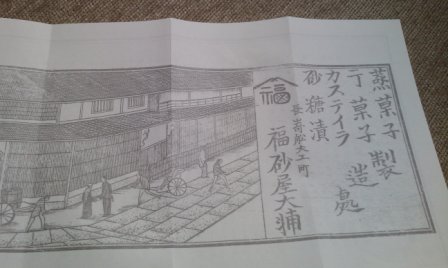 蒸菓子製
干菓子造處
カステイラ
砂糖漬
福
長崎船大工町
福砂屋大輔